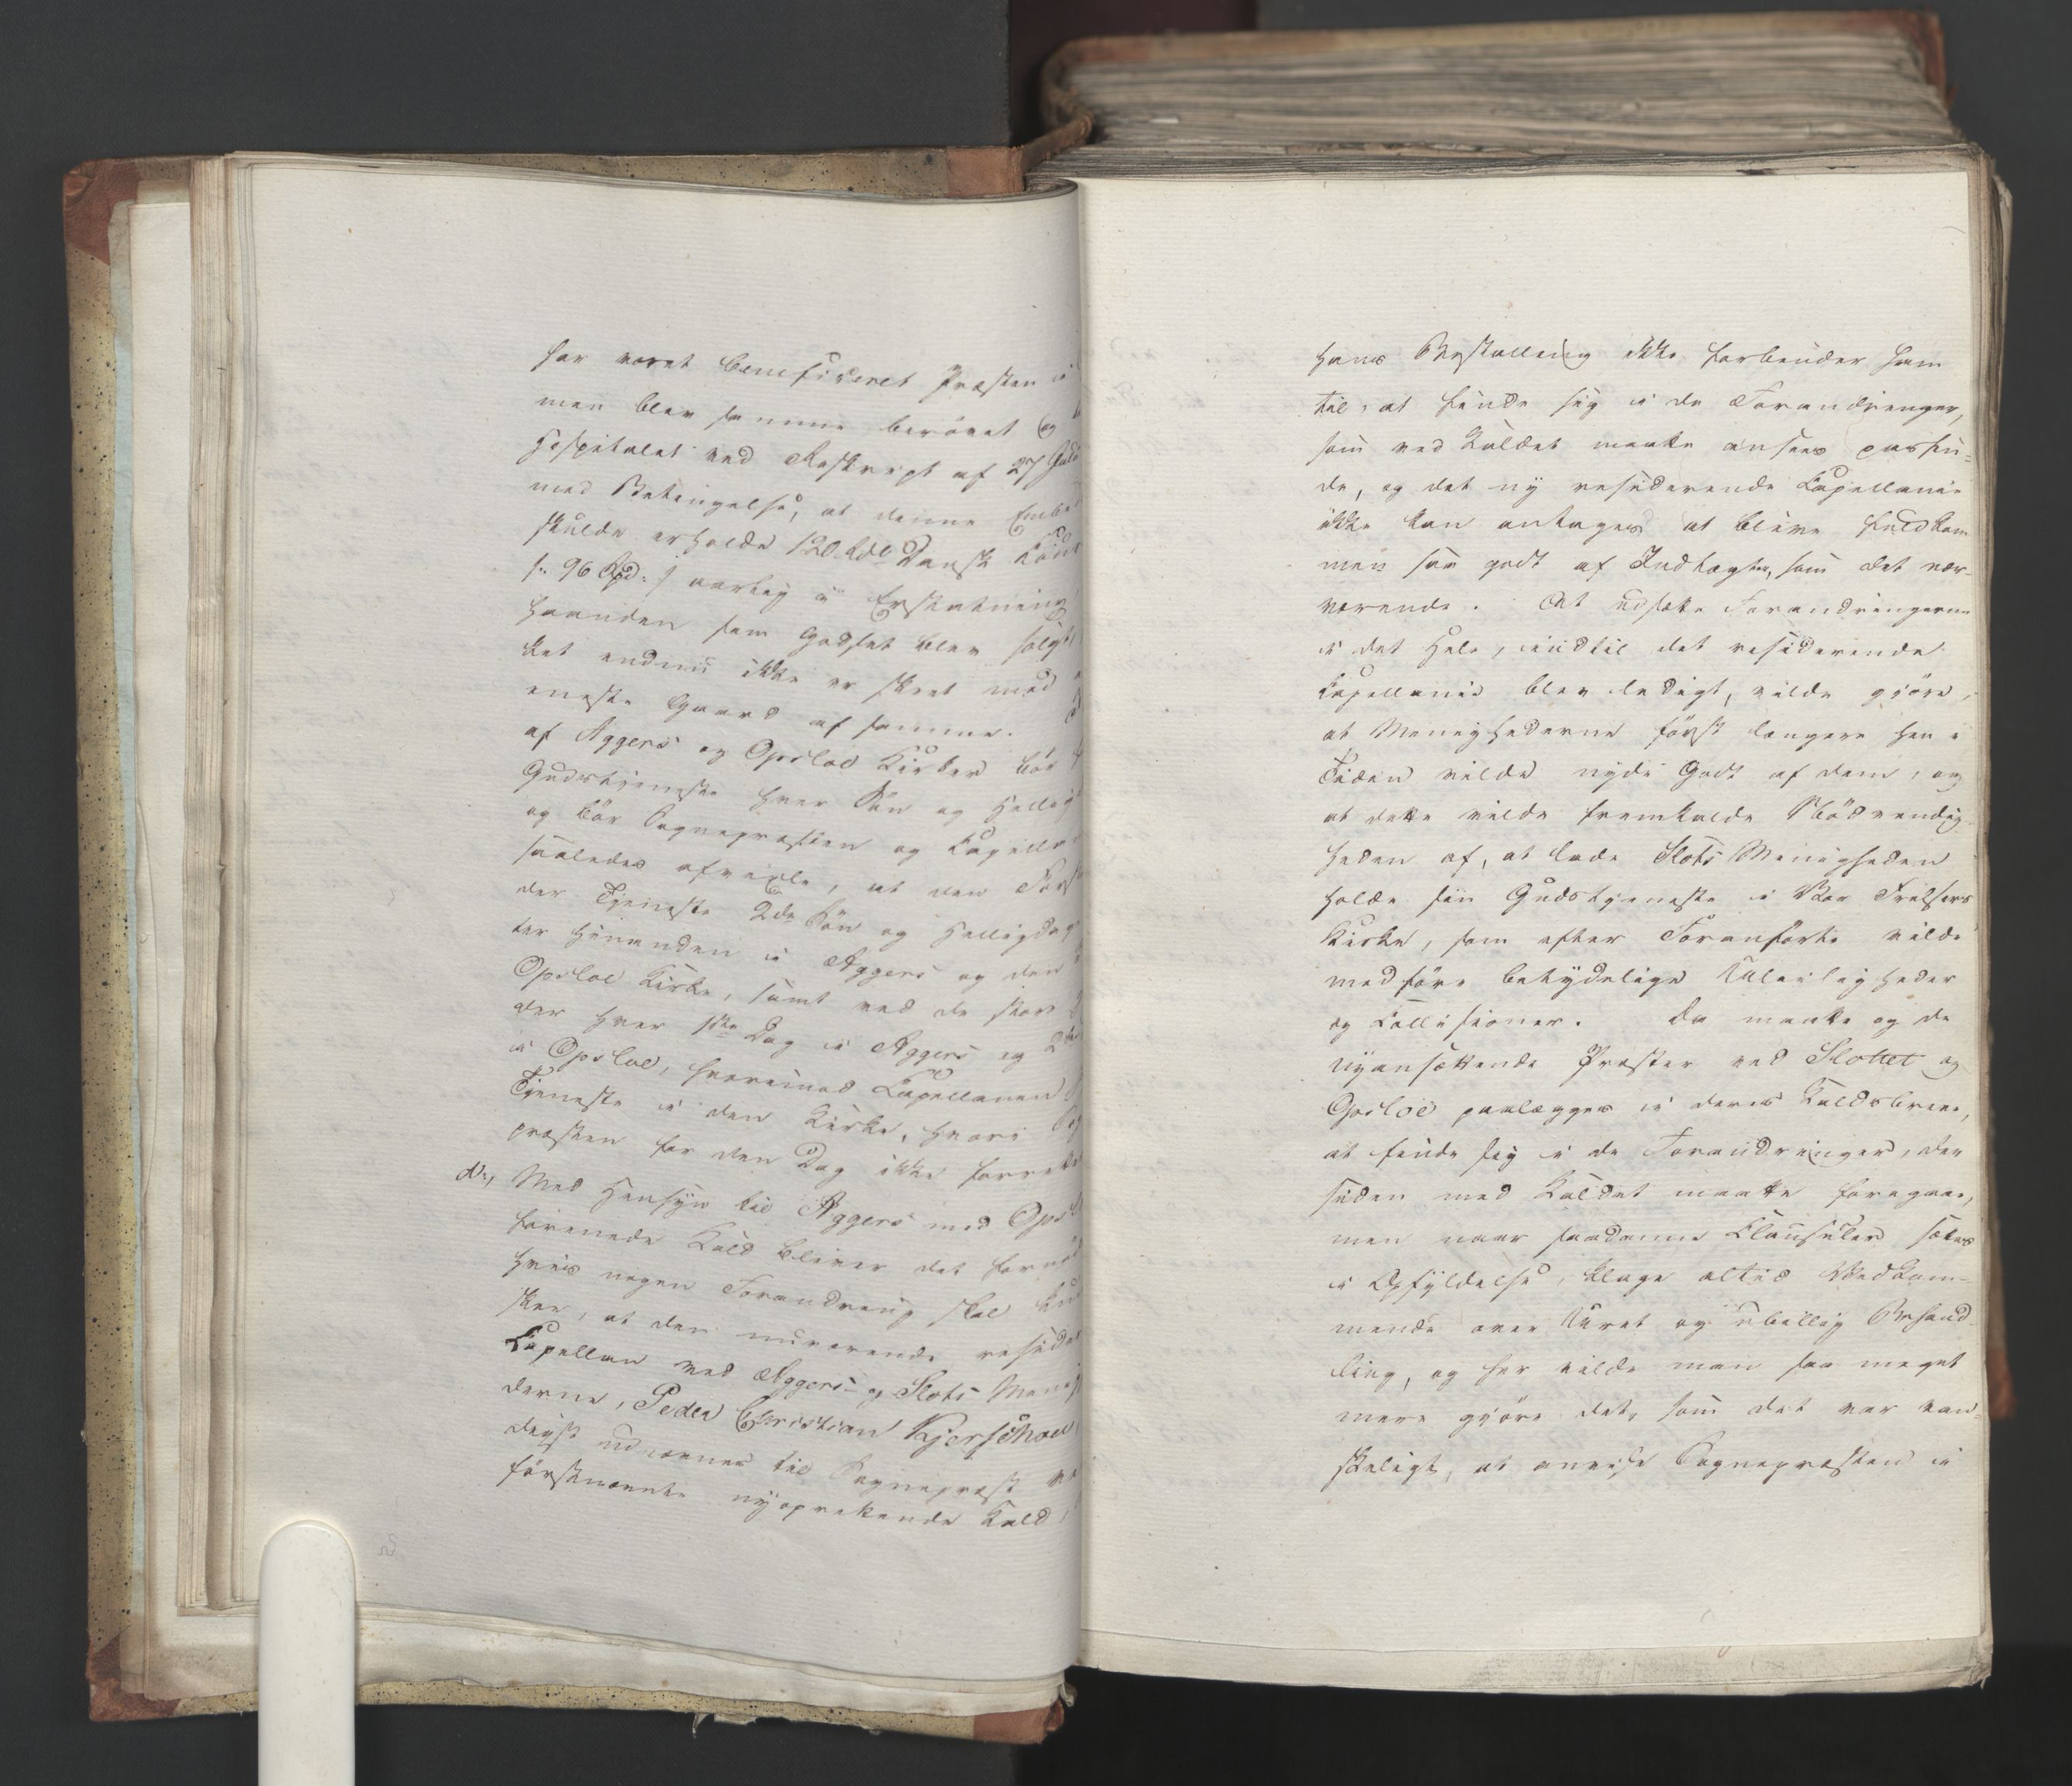 har været beneficeret Præsten i
men blev samme berövet og
Hospitalet ved Reskript af 27
med Betingelse, at denne Embe
skulde erholde 120 Rdlr Dansk
/: 96 Spd: / aarlig i Erstatning
haanden som Godset blev solgt,
ket endnu ikke er skeet med
eneste Gaard af samme.
af Aggers og Opsloe Kirker bör
Gudstjeneste hver Sön og Hellig
og bör Sognepræsten og Capella
saaledes afvexle, at den Först
der Tjeneste 2de Sön og Helligdag
ter hinanden i Aggers og den
Opsloe Kirke, samt ved de store
der hver 1ste Dag i Aggers og 2den
i Opsloe, hvorimod Capellanen
Tjeneste i den Kirke, hvori Sog
præsten for den Dag ikke forrette
d., Med Hensyn til Aggers med Opsl
forenede Kald bliver det fornö
hvis nogen Forandring skal kun
skee, at den nuværende reside
Capellan ved Aggers- og Slots Menig
derne, Peder Christian Kjerschow
deligst udnævnes til Sognepræst ve
förstnævnte nyoprettende Kald,
hans Bestalling ikke forbinder ham
til, at finde sig i de Forandringer,
som ved Kaldet maatte ansees passen-
de, og det ny residerende Capellanie
ikke kan antages at blive fuldkom
men saa godt af Indtægter, som det nær-
værende. At udsætte Forandringerne
i det Hele, indtil det residerende
Capellanie blev ledigt, vilde gjöre,
at Menighederne först længere hen i
Tiden vilde nyde Godt af dem, og
at dette vilde fremkalde Nödvendig-
heden af, at lade Slots Menigheden
holde sin Gudstjeneste i Vor Frelsers
Kirke, som efter Foranförte vilde
medföre betydelige Uleiligheder
og Collisioner. Da maatte og de
nyansættende Præster ved Slottet og
Opsloe paalægges i deres Kaldsbreve,
at finde sig i de Forandringer, der
siden med Kaldet maatte foregaae,
men naar saadanne Clausuler sættes
i Opfyldelse, klage altid Vedkom-
mende over Uret og ubillig Behand-
ling, og her vilde man saa meget
mere gjöre det, som det var van-
skeligt, at anvise Sognepræsten i